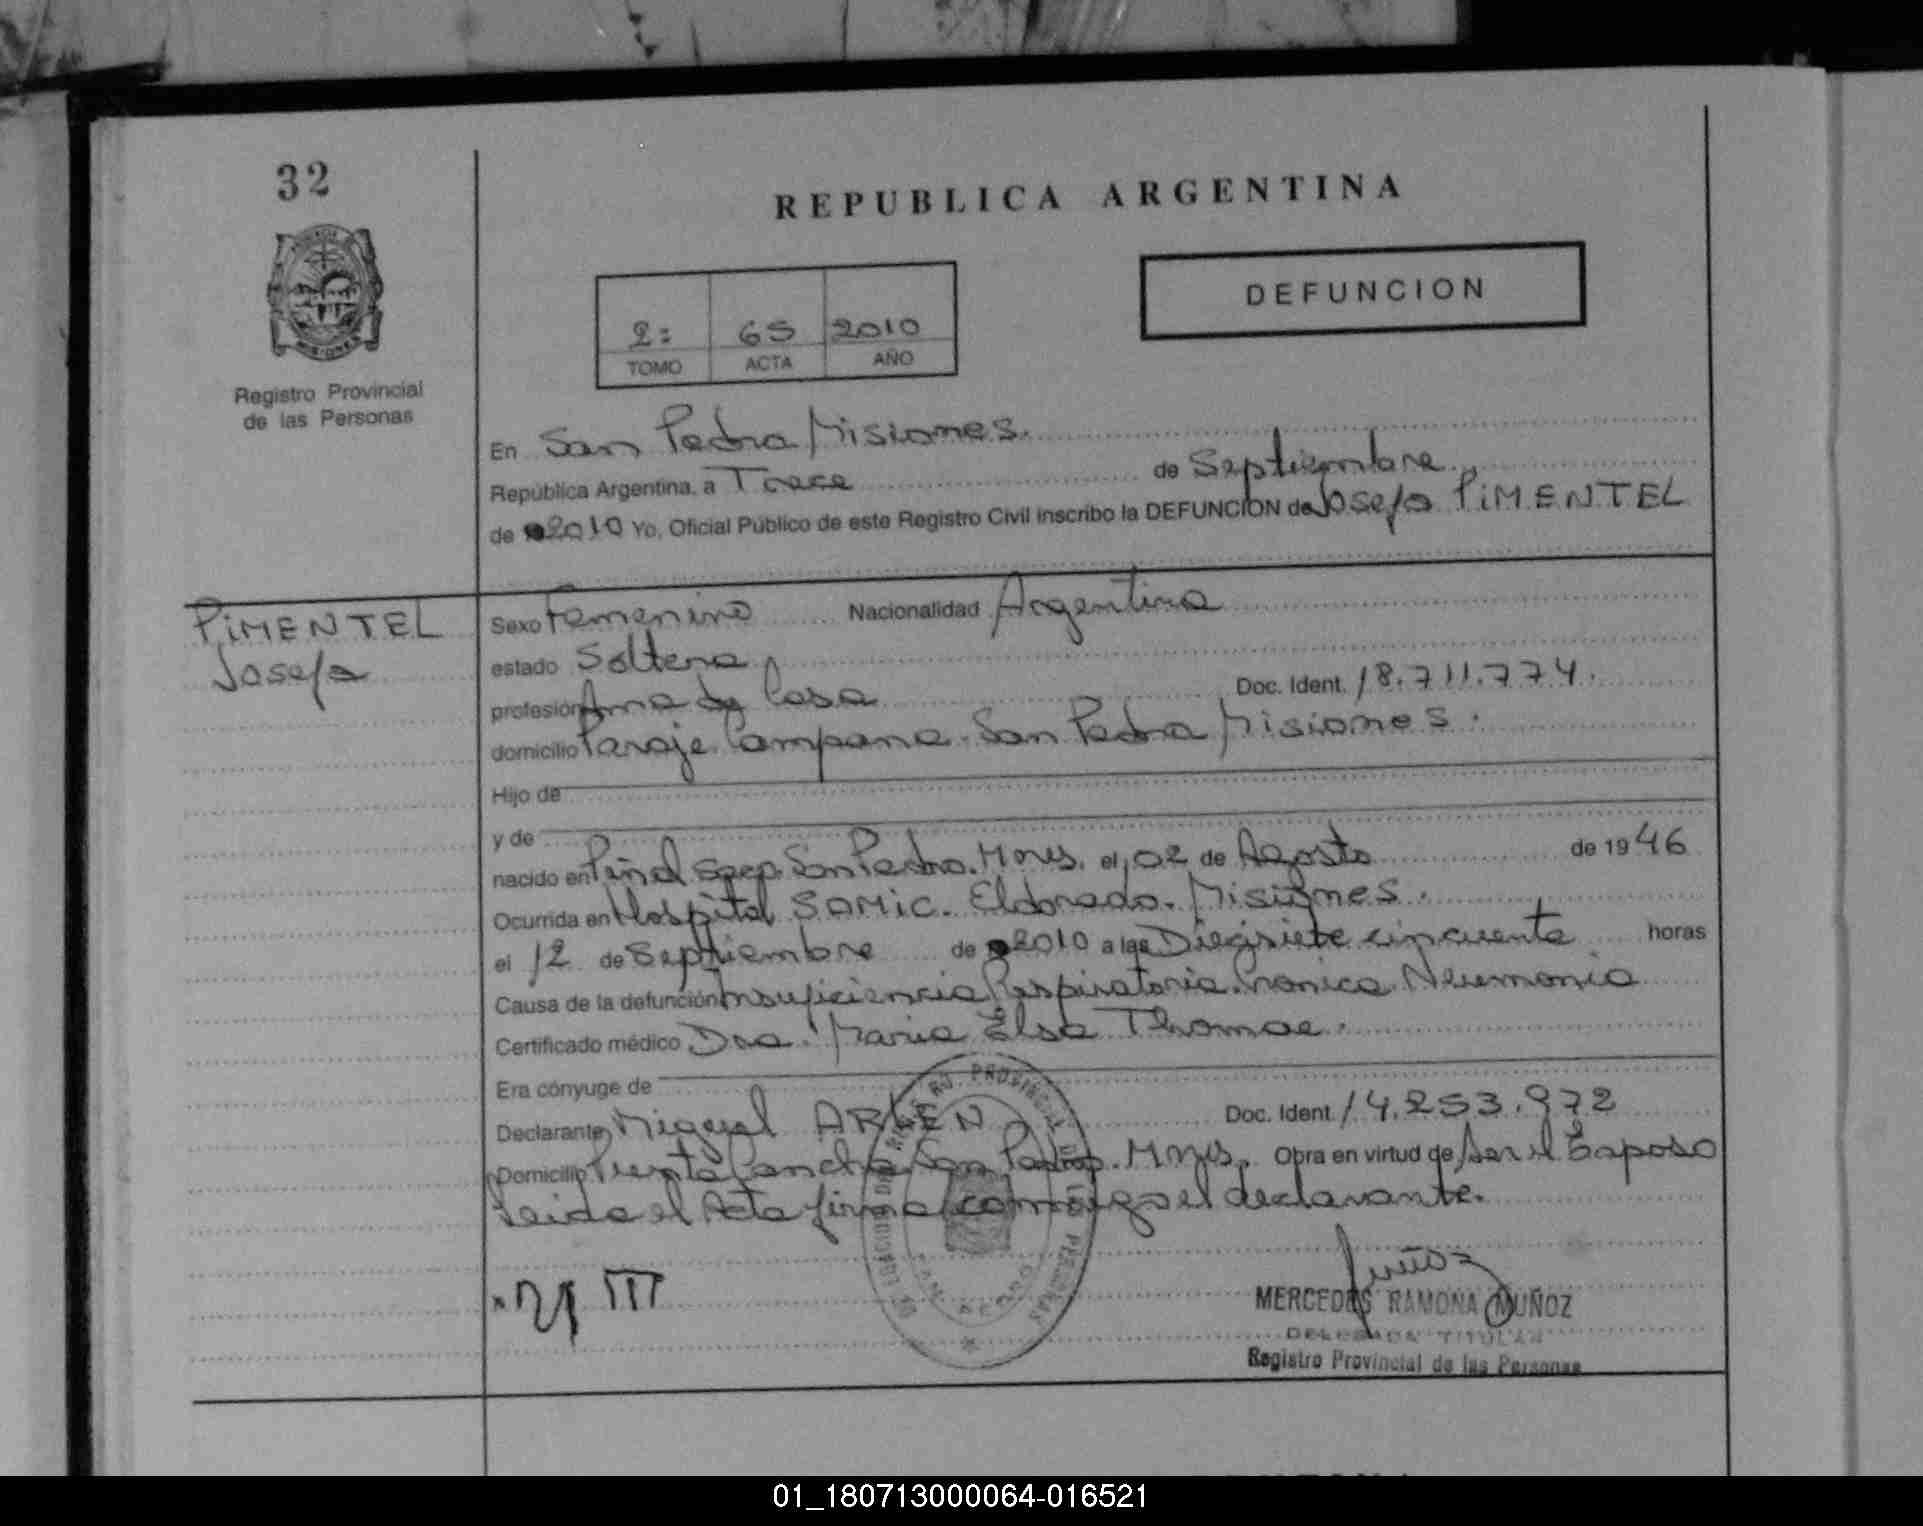 32
REPUBLICA ARGENTINA
DEFUNCION
2: 65 2010
TOMO ACTA AÑO
MISIONES
Registro Provincial
de las Personas
En San Pedro Misiones.
República Argentina, a Trece de Septiembre
de 2010 Yo, Oficial Público de este Registro Civil inscribo la DEFUNCION de Josefa PiMENTEL
PiMENTEL
Josefa
Sexo Femenino Nacionalidad Argentina
estado Soltera
profesión Ama de Casa Doc. Ident. 18.711.774.
domicilio Paraje Campana San Pedro Misiones.
Hijo de
y de
nacido en Piñal San Pedro. Mnes. el 02 de Agosto de 1946
Ocurrida en Hospital SAMiC. Eldorado. Misiones.
el 12 de Septiembre de 2010 a las Diecisiete cincuenta horas
Causa de la defunción Insuficiencia Respiratoria. Cronica. Neumonia
Certificado médico Dra. Maria Elsa Thomae.
Era cónyuge de
Declarante Miguel Doc. Ident. 14.253.972
Domicilio San Pedro. Mnes. Obra en virtud de Ser el Esposo
Leida el Acta firma conmigo el declarante.
Muñoz
MERCEDES RAMONA MUÑOZ
DELEGADA TITULAR
Registro Provincial de las Personas
01_180713000064-016521